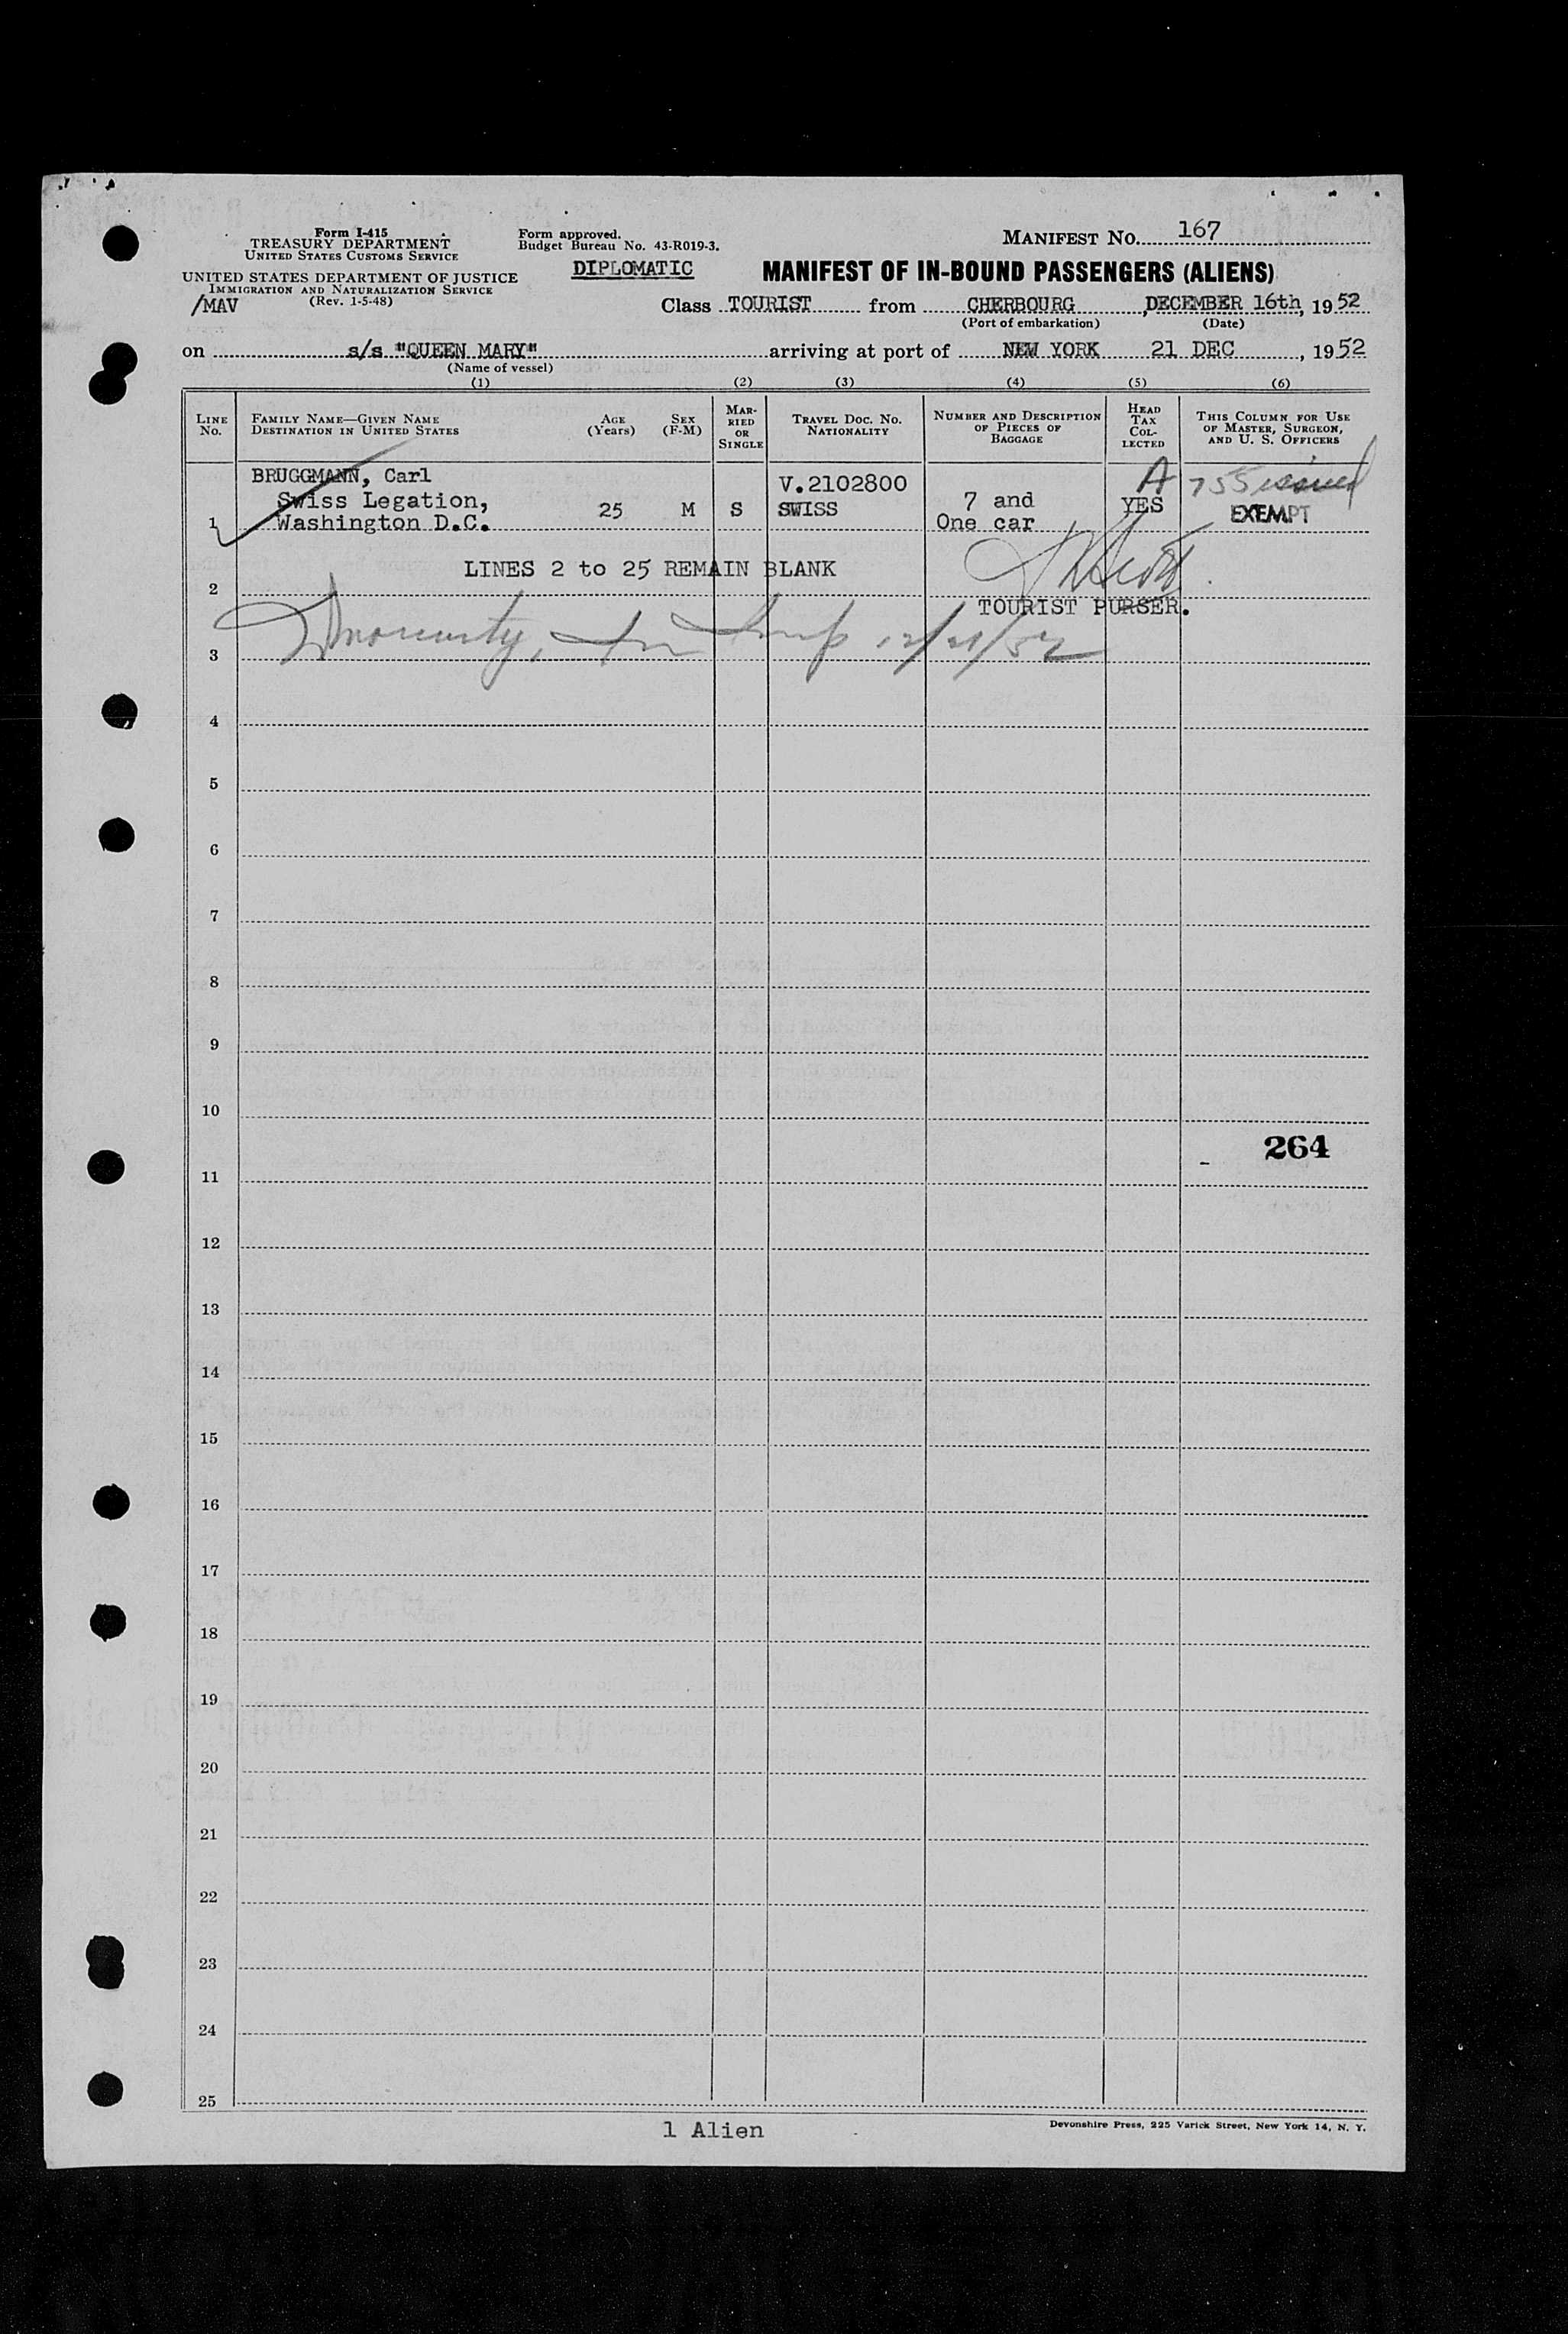 Form I-415
TREASURY DEPARTMENT
UNITED STATES CUSTOMS SERVICE
UNITED STATES DEPARTMENT OF JUSTICE
IMMIGRATION AND NATURALIZATION SERVICE
(Rev. 1-5-48)
/MAV
Form approved.
Budget Bureau No. 43-R019-3.
DIPLOMATIC
MANIFEST NO. 167
MANIFEST OF IN-BOUND PASSENGERS (ALIENS)
Class TOURIST from CHERBOURG, DECEMBER 16th, 1952
(Port of embarkation) (Date)
on s/s "QUEEN MARY" arriving at port of NEW YORK 21 DEC, 1952
(Name of vessel)
(1) (2) (3) (4) (5) (6)
LINE NO.
FAMILY NAME—GIVEN NAME
DESTINATION IN UNITED STATES
AGE (Years)
SEX (F-M)
MARRIED OR SINGLE
TRAVEL DOC. NO. NATIONALITY
NUMBER AND DESCRIPTION OF PIECES OF BAGGAGE
HEAD TAX COLLECTED
THIS COLUMN FOR USE OF MASTER, SURGEON, AND U. S. OFFICERS
BRUGGMANN, Carl V.2102800 A 755 issued
Swiss Legation, 25 M S SWISS 7 and YES EXEMPT
1 Washington D.C. One car
LINES 2 to 25 REMAIN BLANK
2
TOURIST PURSER.
12/21/52
3
4
5
6
7
8
9
10
264
11
12
13
14
15
16
17
18
19
20
21
22
23
24
25
1 Alien
Devonshire Press, 225 Varick Street, New York 14, N. Y.